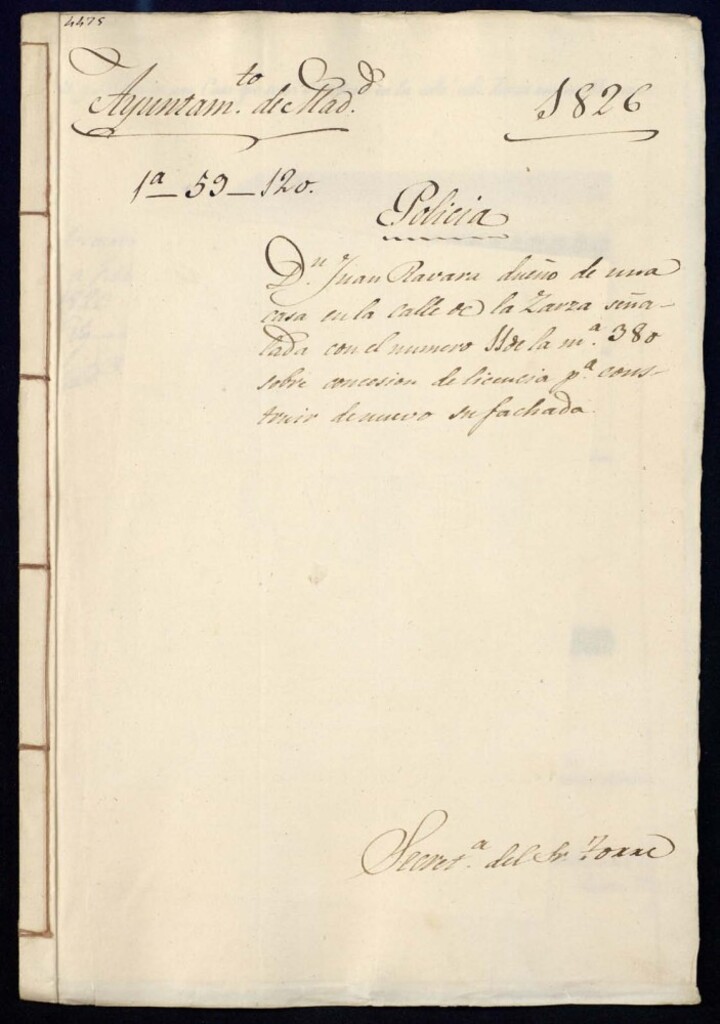 4475
Ayuntam.to de Mad.d
1826
1a_59_120.
Policia
Dn. Juan Ravara dueño de una
casa en la calle de la Zarza seña-
lada con el numero 11 de la m.a 380
sobre concesion de licencia p.a cons-
truir de nuevo su fachada.
Secret.a del Sr. Torre